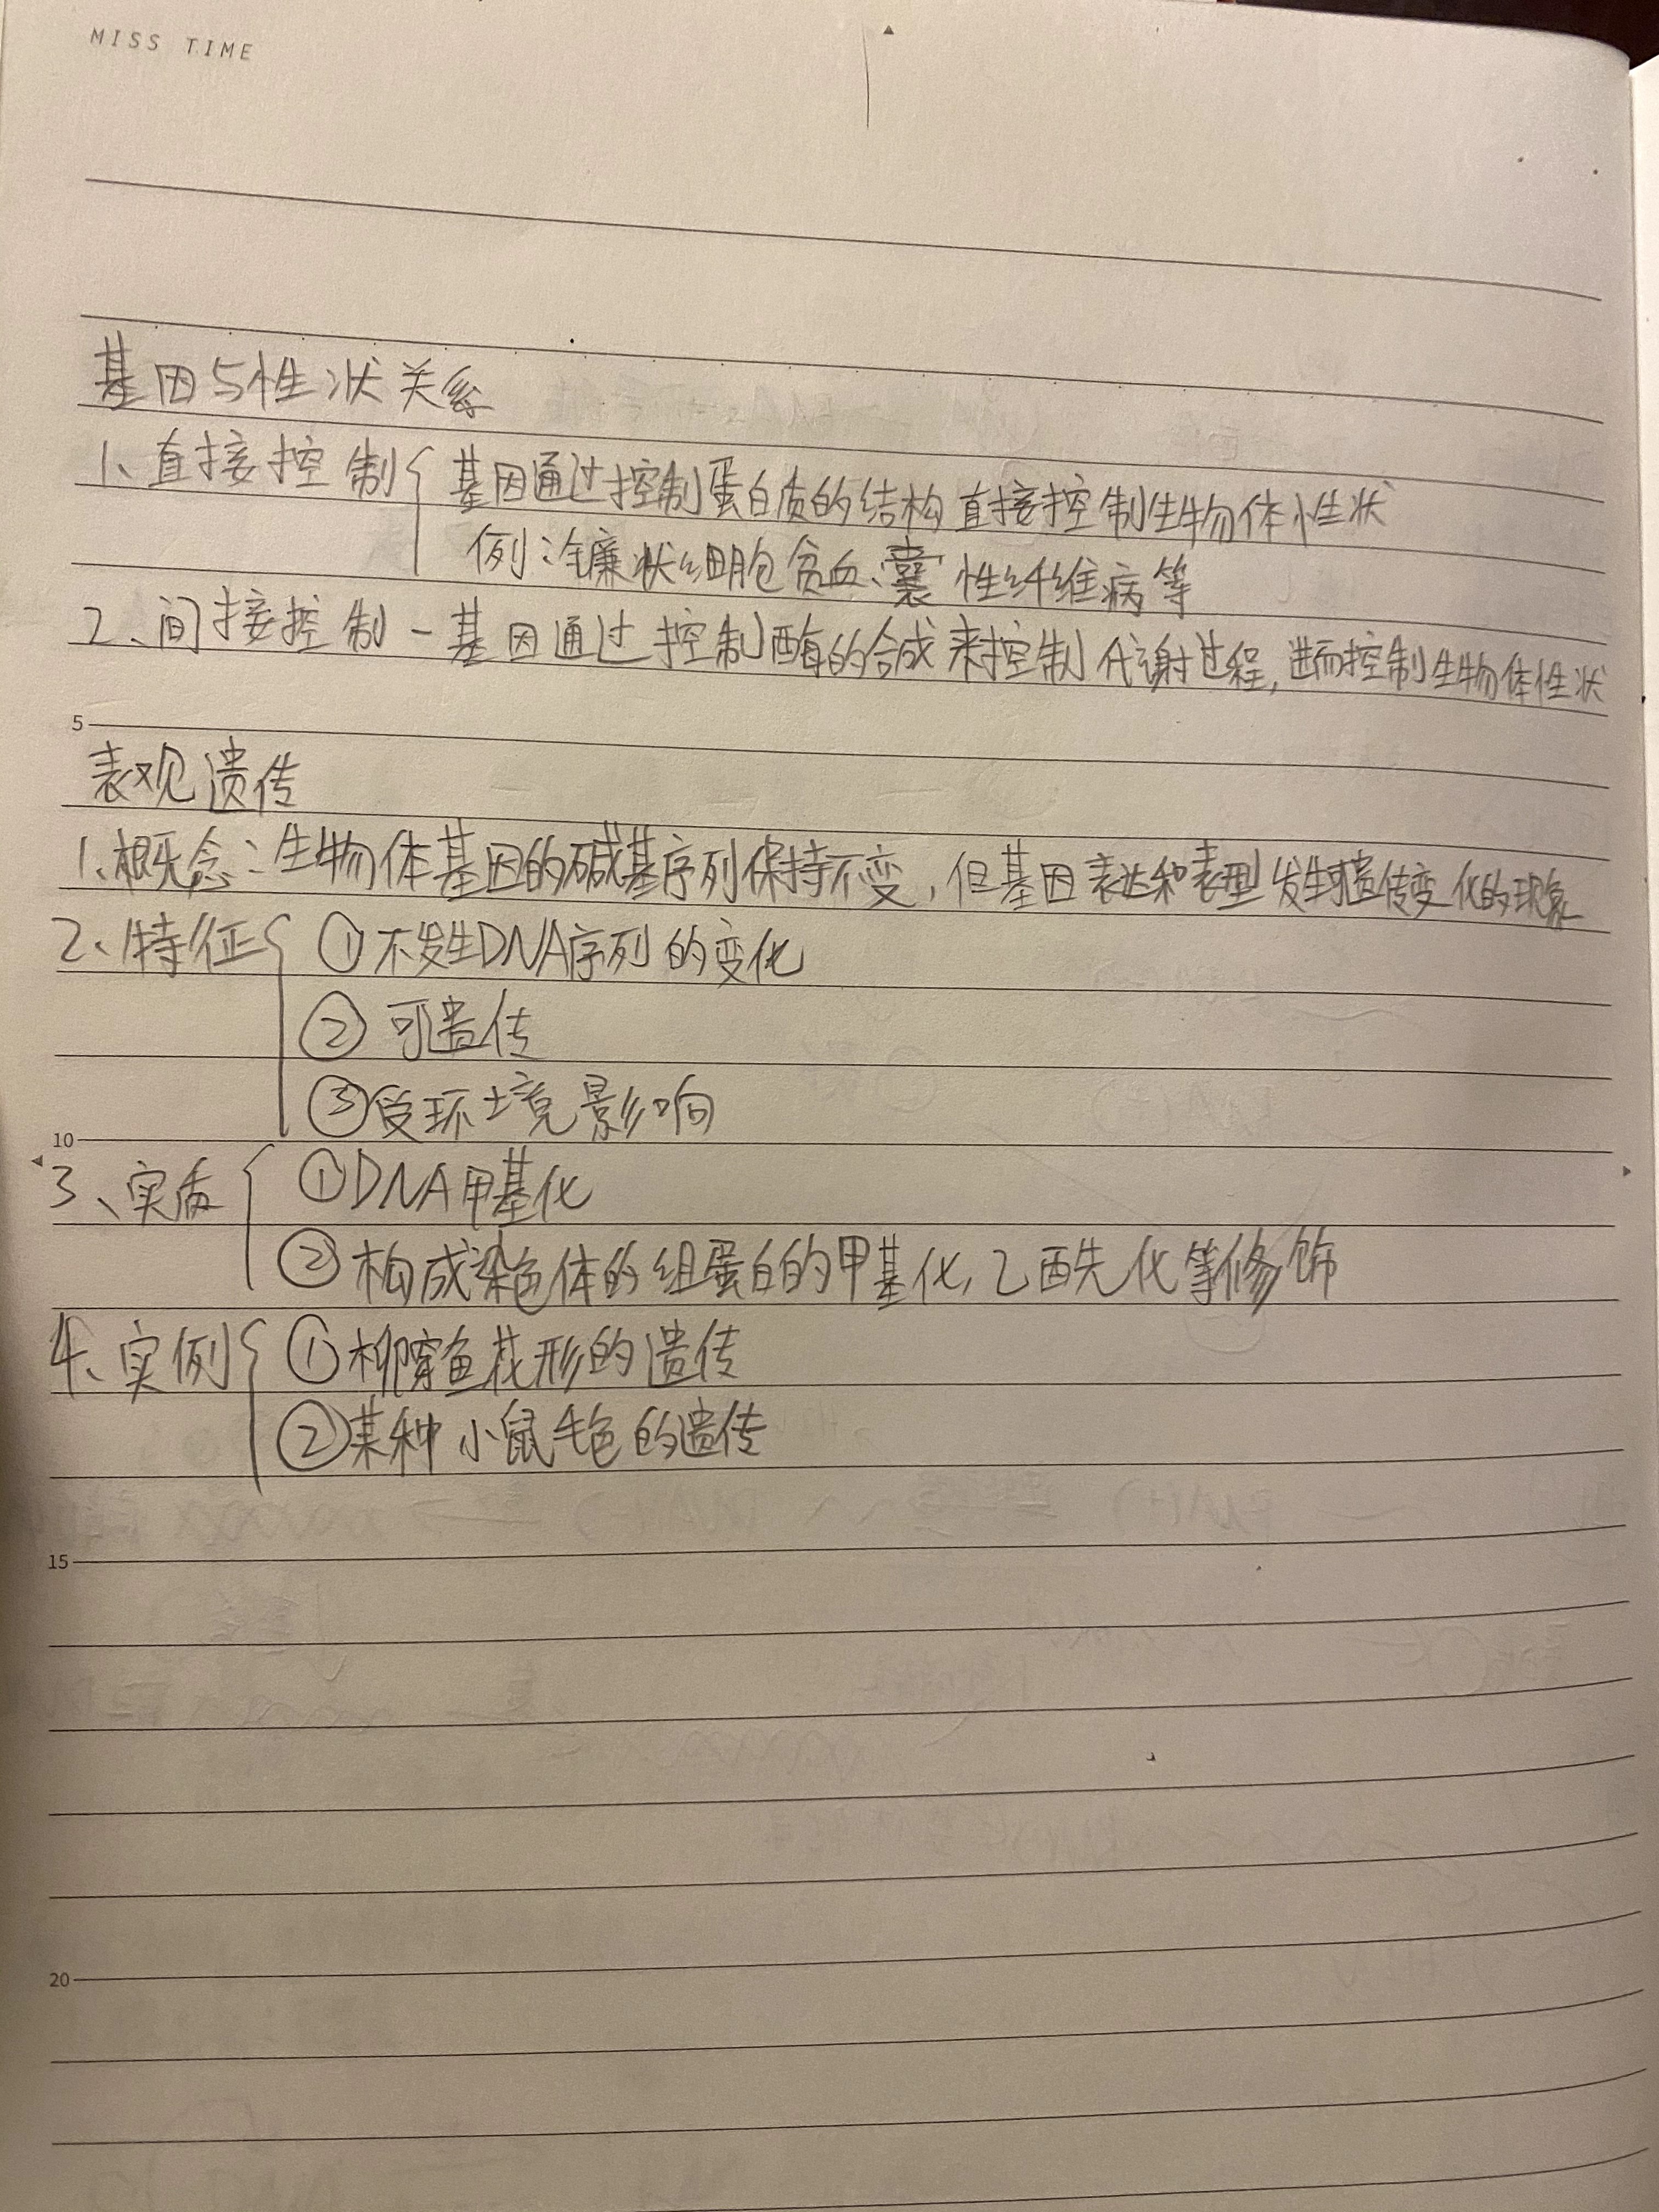 MISS TIME
基因与性状关系
1、直接控制{ 基因通过控制蛋白质的结构直接控制生物体性状
例:镰状细胞贫血、囊性纤维病等
2、间接控制-基因通过控制酶的合成来控制代谢过程,进而控制生物体性状
5
表观遗传
1、概念:生物体基因的碱基序列保持不变,但基因表达和表型发生可遗传变化的现象
2、特征{ ①不发生DNA序列的变化
②可遗传
③受环境影响
10
3、实质{ ①DNA甲基化
②构成染色体的组蛋白的甲基化,乙酰化等修饰
4、实例{ ①柳穿鱼花形的遗传
②某种小鼠毛色的遗传
15
20